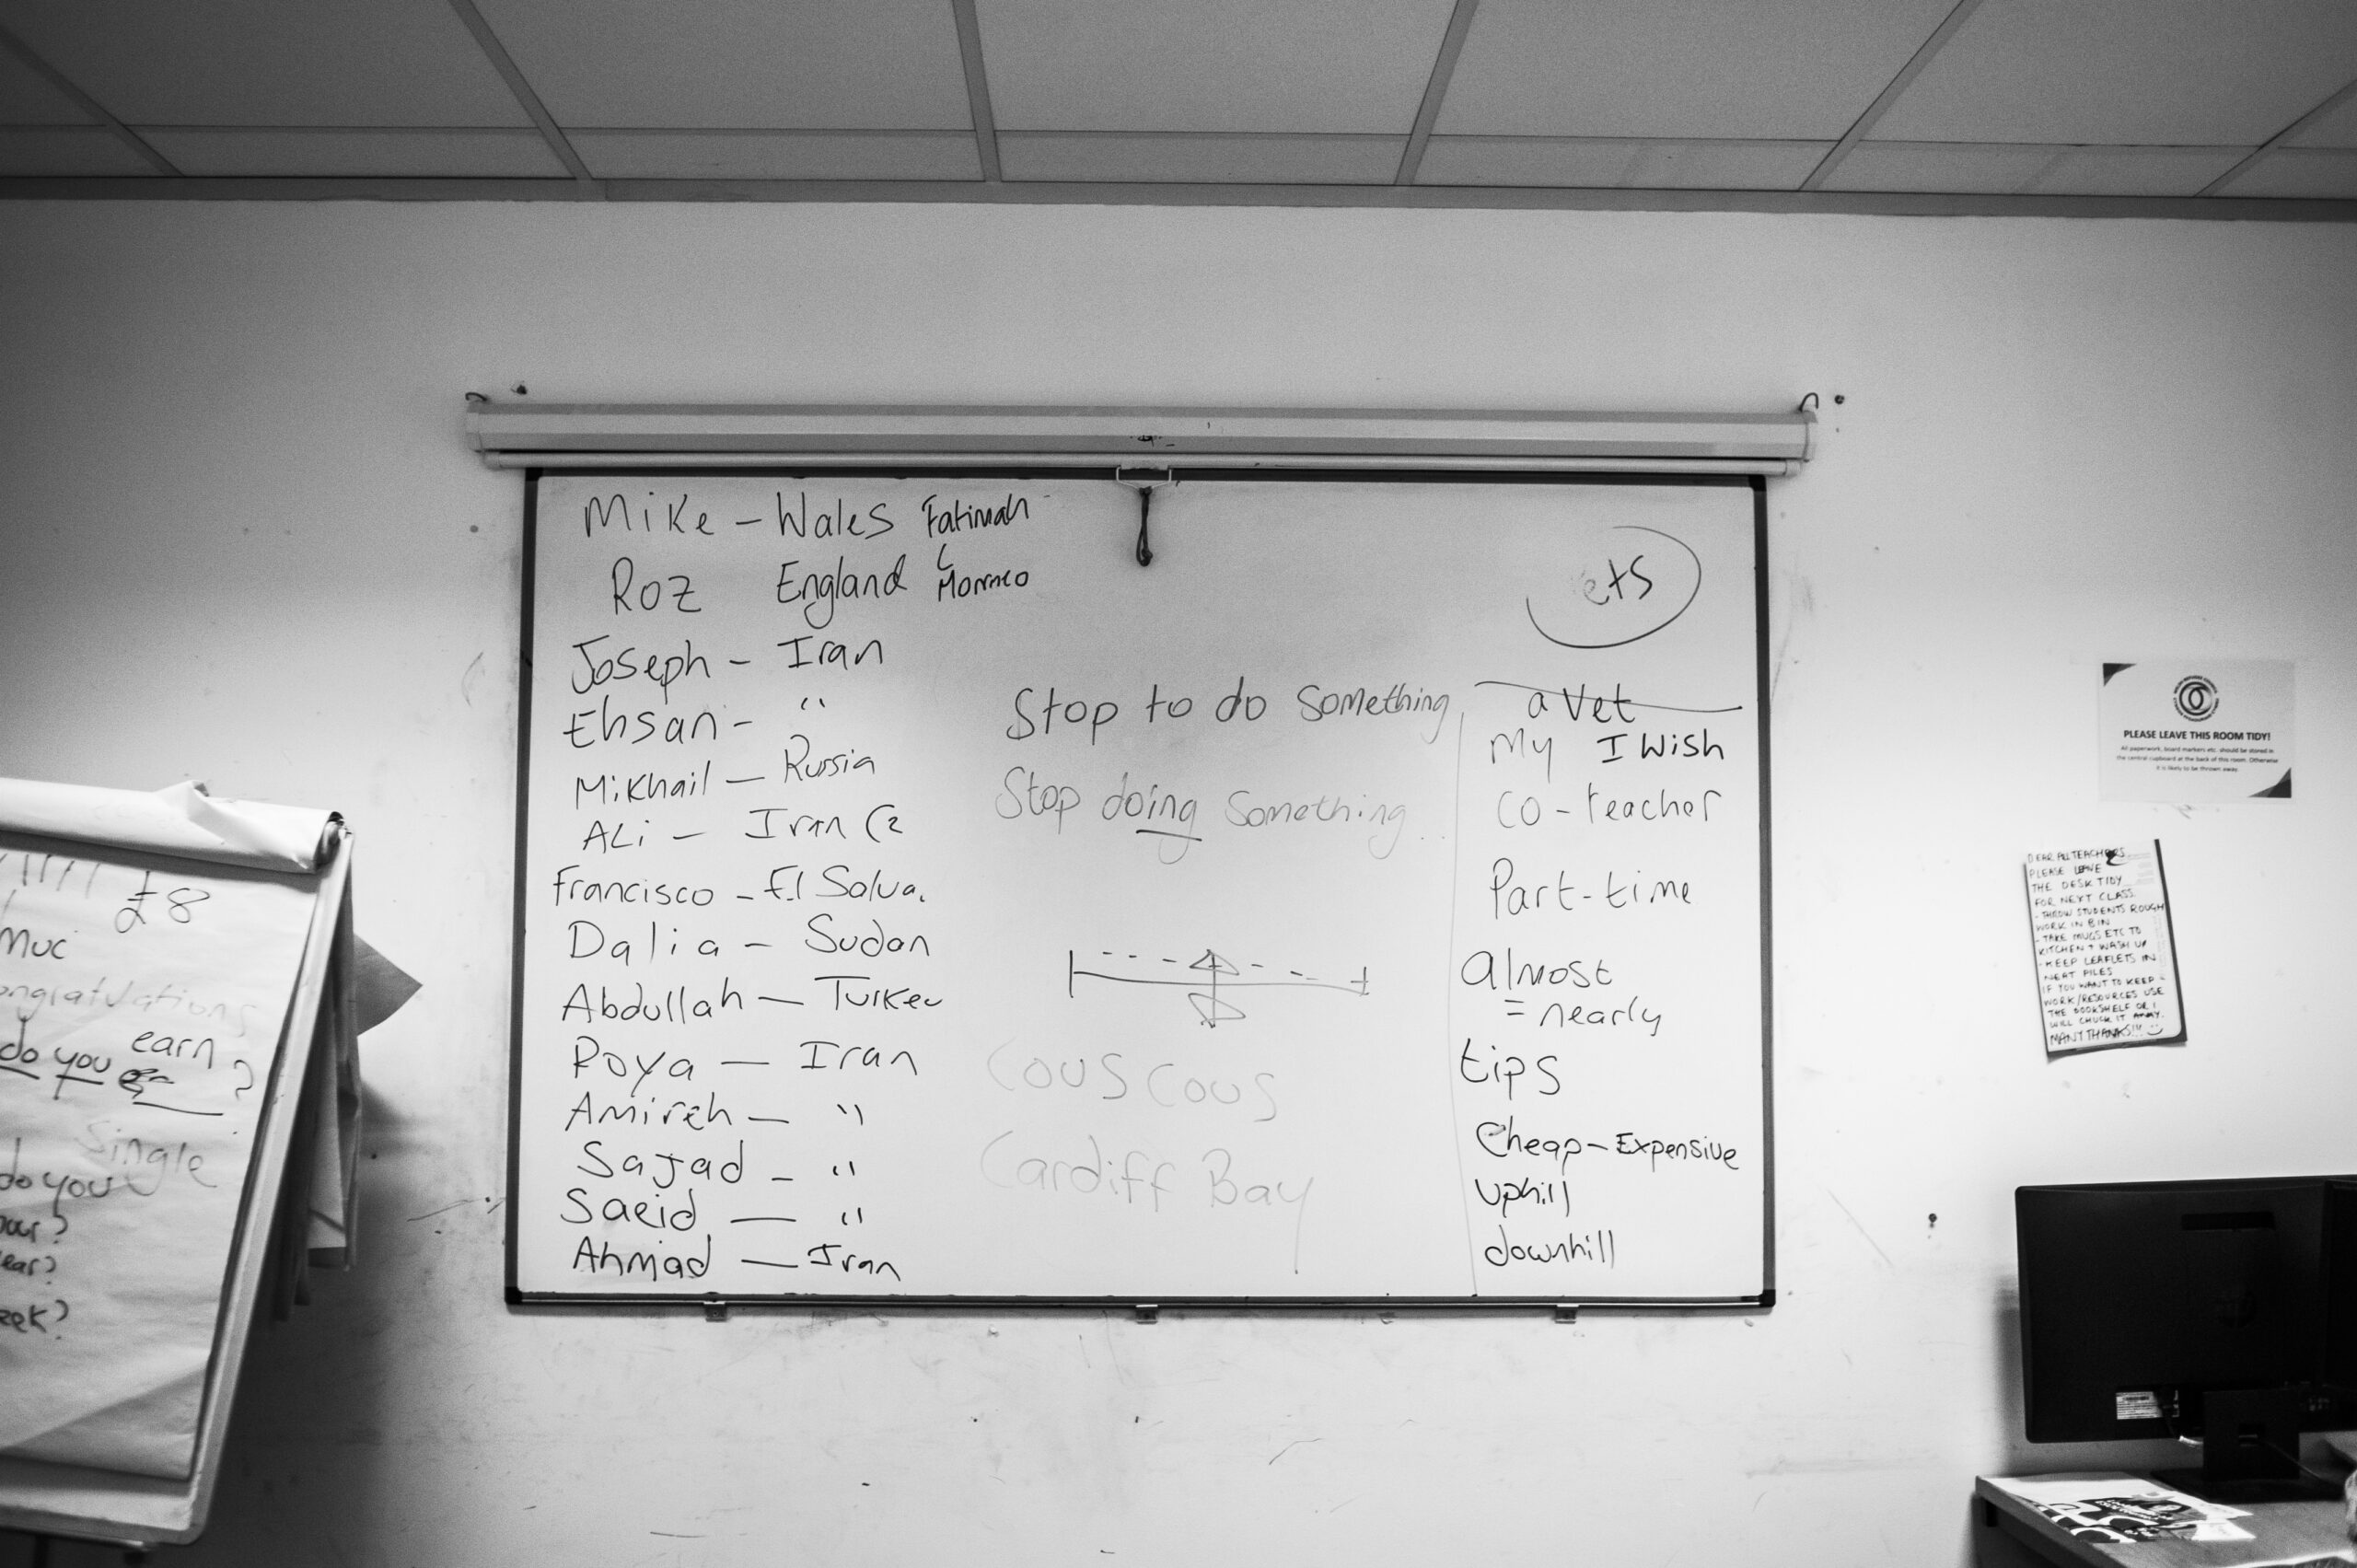 Mike - Wales Fatimah
Roz England Morroco
Joseph - Iran
Ehsan - "
Mikhail - Russia
ALi - Iran (2
Francisco - El Salva.
Dalia - Sudan
Abdullah - Turkey
Roya - Iran
Amireh - "
Sajad - "
Saeid - "
Ahmad - Iran
Stop to do something
Stop doing something
Couscous
Cardiff Bay
ets
a Vet
My I Wish
co-teacher
Part-time
almost
= nearly
tips
Cheap - Expensive
Uphill
downhill
£8
Muc
ongratulations
earn
do you ?
Single
do you
our?
ear?
eek?
PLEASE LEAVE THIS ROOM TIDY!
All paperwork, board markers etc. should be stored in
the central cupboard at the back of this room. Otherwise
it is likely to be thrown away.
DEAR ALL TEACHERS
PLEASE LEAVE
THE DESK TIDY
FOR NEXT CLASS.
- THROW STUDENTS ROUGH
WORK IN BIN
- TAKE MUGS ETC TO
KITCHEN + WASH UP
- KEEP LEAFLETS IN
NEAT PILES
IF YOU WANT TO KEEP
WORK/RESOURCES USE
THE BOOKSHELF OR I
WILL CHUCK IT AWAY.
MANY THANKS!!!